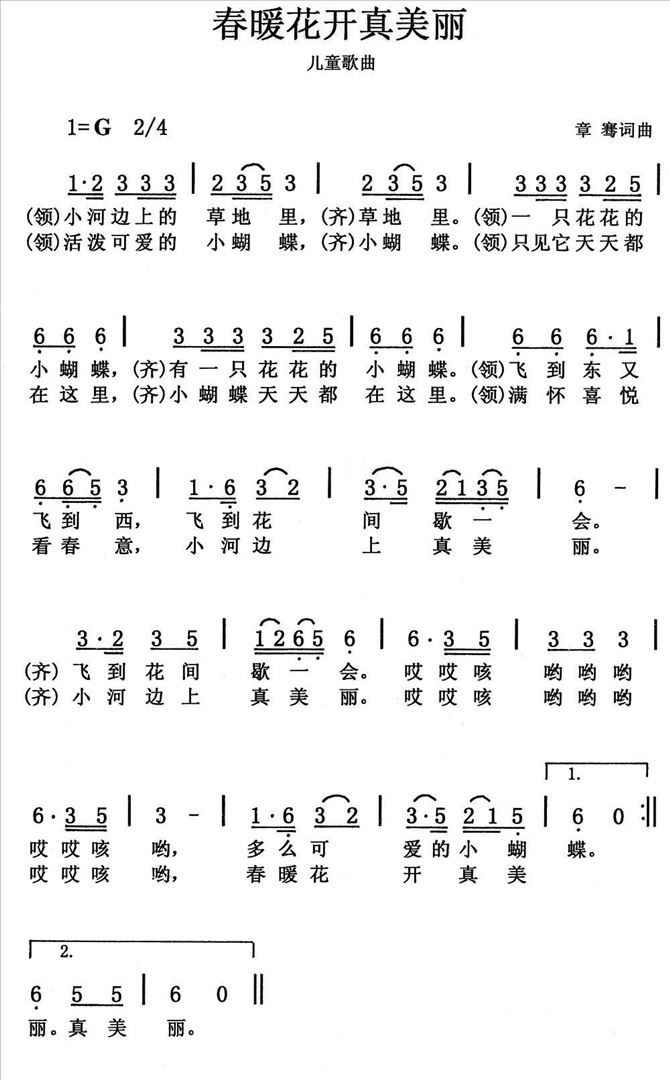 春暖花开真美丽
儿童歌曲
1=G 2/4
章 骞词曲
1·2 3 3 3 | 2 3 5 3 | 2 3 5 3 | 3 3 3 3 2 5 |
(领)小河边上的 草地 里,(齐)草地 里。(领)一 只花花的
(领)活泼可爱的 小蝴 蝶,(齐)小蝴 蝶。(领)只见它天天都
6 6 6 | 3 3 3 3 2 5 | 6 6 6 | 6 6 6·1 |
小蝴蝶,(齐)有一只花花的 小蝴蝶。(领)飞到东又
在这里,(齐)小蝴蝶天天都 在这里。(领)满怀喜悦
6 6 5 3 | 1·6 3 2 | 3·5 2 1 3 5 | 6 - |
飞到 西, 飞到花 间 歇一 会。
看春 意, 小河边 上 真美 丽。
3·2 3 5 | 1 2 6 5 6 | 6·3 5 | 3 3 3 |
(齐)飞到花间 歇一会。 哎哎咳 哟哟哟
(齐)小河边上 真美丽。 哎哎咳 哟哟哟
1.
6·3 5 | 3 - | 1·6 3 2 | 3·5 2 1 5 | 6 0 :‖
哎哎咳 哟, 多么可 爱的小蝴 蝶。
哎哎咳 哟, 春暖花 开真美
2.
6 5 5 | 6 0 ‖
丽。真美 丽。